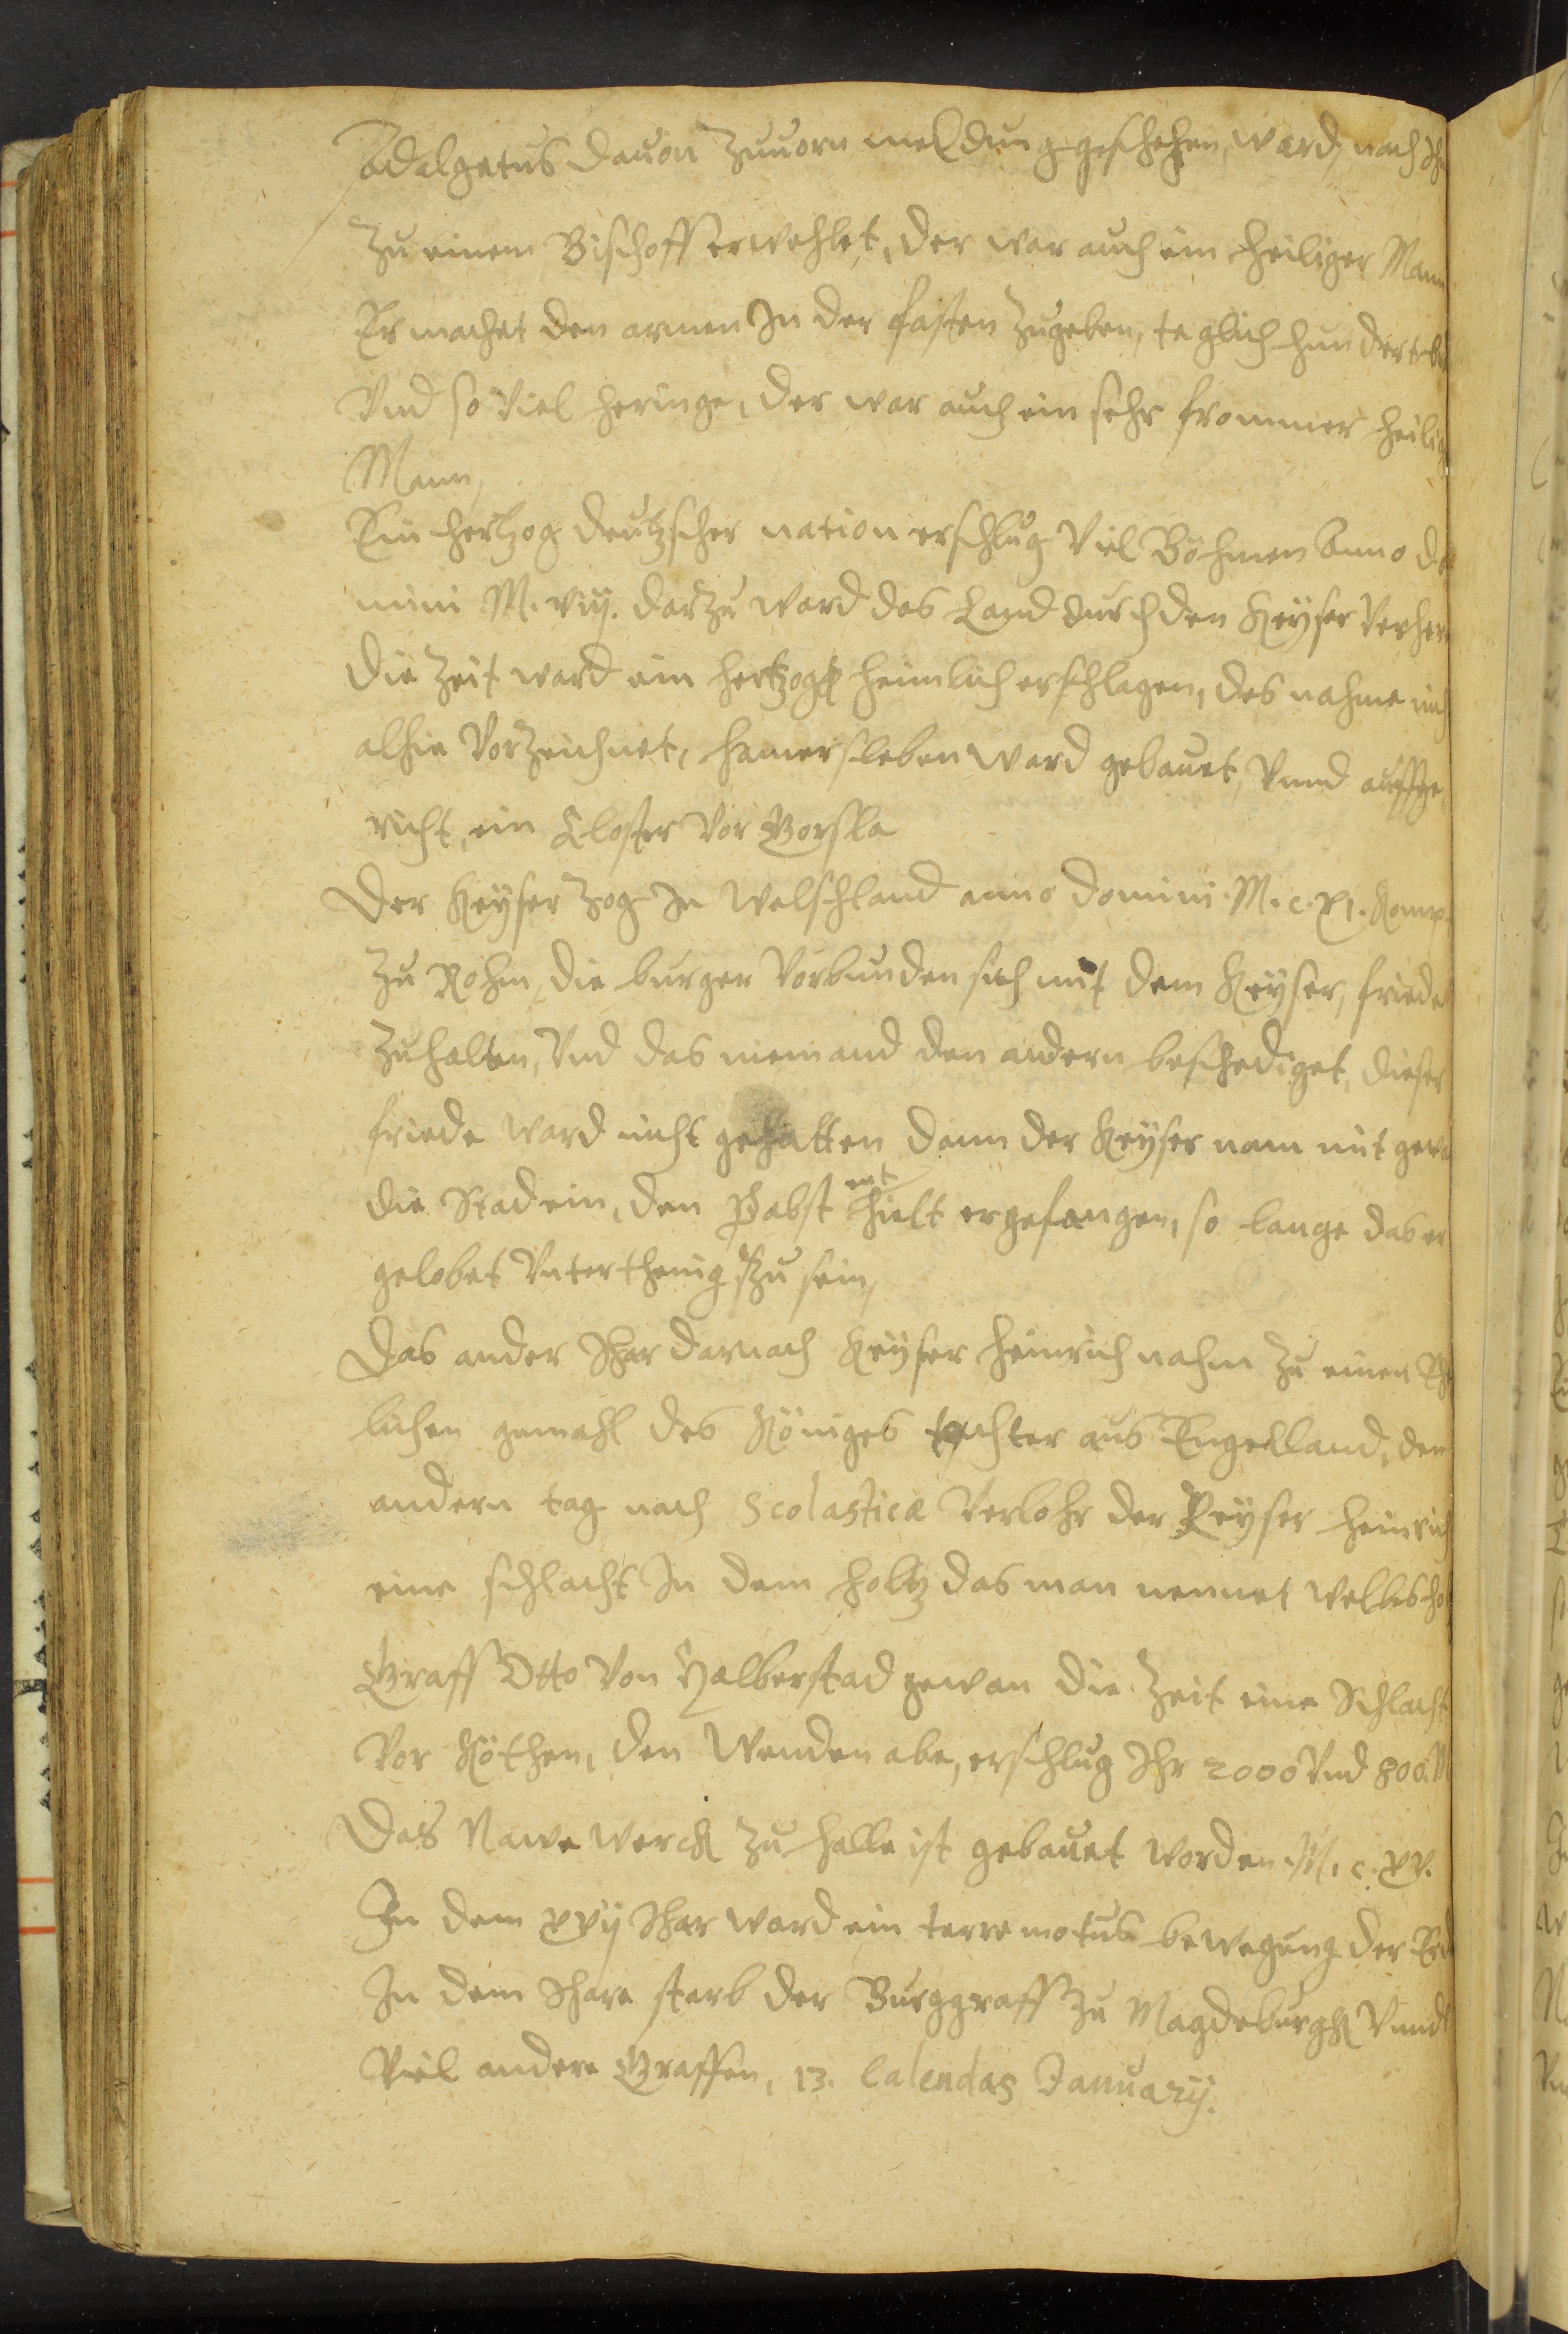 Adalgatus dauon Zuuorn meldung geschehen, ward nach Ihm
Zu einem Bischoff erwehlet, der war auch ein heiliger Mann
Er machet den armen In der fasten Zugeben, teglich hundert
Vnd so viel heringe, der war auch ein sehr frommer heilig
Mann,
Ein hertzog deutzscher nation erschlug Viel Böhmen Anno do
mini M. viij. darzu ward das Land durch den Keyser Verher
die Zeit ward ein hertzogk heimlich erschlagen, des nahme nich
alhie Vorzeichnet, hamersleben ward gebauet, Vnnd auffge
richt, ein Closter vor Gorsla
Der Keyser Zog In Welschland anno domini. M. c. xj. kamp
Zu Rohm, die burger Vorbunden sich mit dem Keyser, friede
Zuhalten, Vnd das niemand den andern beschediget, dieser
friede ward nicht gehalten dann der Keyser nam mit gewa
die Stad ein, den Pabst enthielt er gefangen, so lange das er
gelobet Vnterthenig Zu sein,
Das ander Ihar darnach Keyser heinrich nahm Zu einen Eh
lichen gemahl des Königes tochter aus Engelland, den
andern tag nach Scolasticæ Verlohr der Keyser heinrich
eine schlacht In dem holtz das man nennet Welbesho
Graff Otto von Halberstad gewan die Zeit eine Schlacht
Vor Köthen, den Wenden abe, erschlug Ihr 2000 Vnd 800. M
Das Nawe werck Zu halle ist gebauet worden M. c. xv.
In dem xvij Ihar ward ein terre motus bewegung der Erd
In dem Ihare starb der Burggraff Zu Magdeburgk Vnnd
Viel andere Graffen, 13. Calendas January.